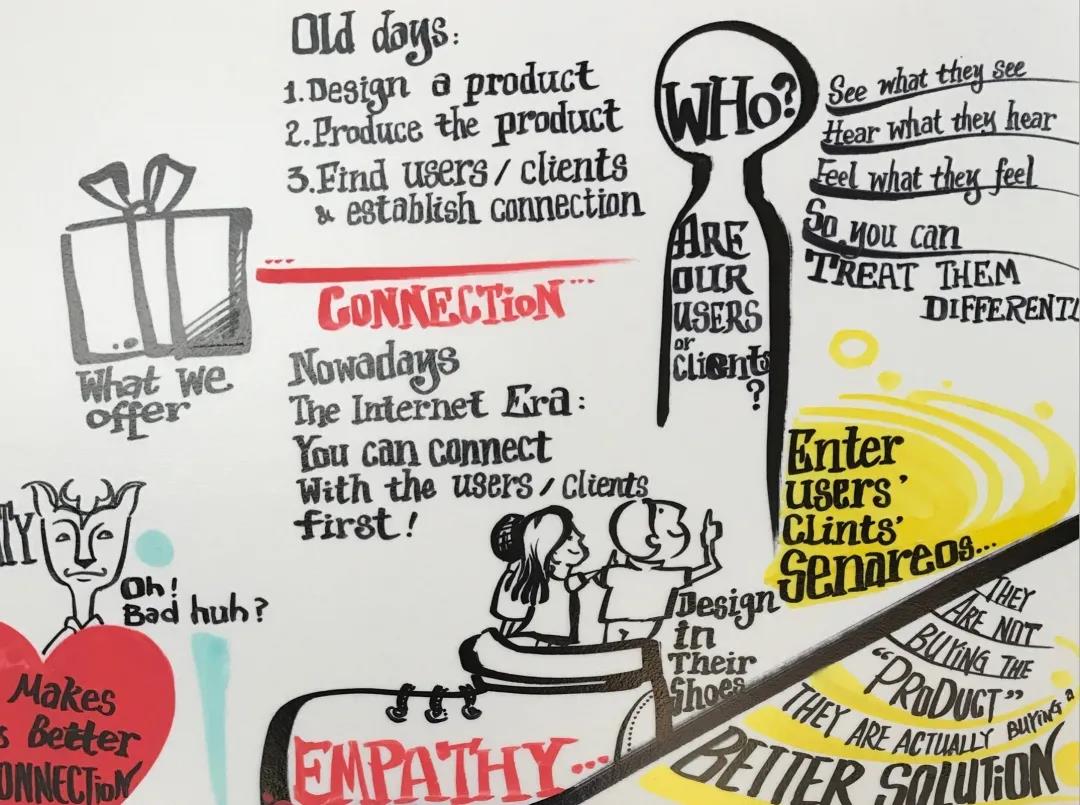 Old days:
1.Design a product
2.Produce the product
3.Find users / clients
& establish connection
CONNECTION
What We
offer
Nowadays
The Internet Era:
You can connect
With the users / Clients
first!
WHO?
ARE
OUR
USERS
or
Clients
?
See what they see
Hear what they hear
Feel what they feel
So, you can
TREAT THEM
DIFFERENTL
Enter
users'
Clints'
Senareos...
Design
in
Their
Shoes
TY
Oh!
Bad huh?
Makes
s Better
ONNECTION
EMPATHY...
THEY
ARE NOT
BUYING THE
"PRODUCT"
THEY ARE ACTUALLY BUYING a
BETTER SOLUTION